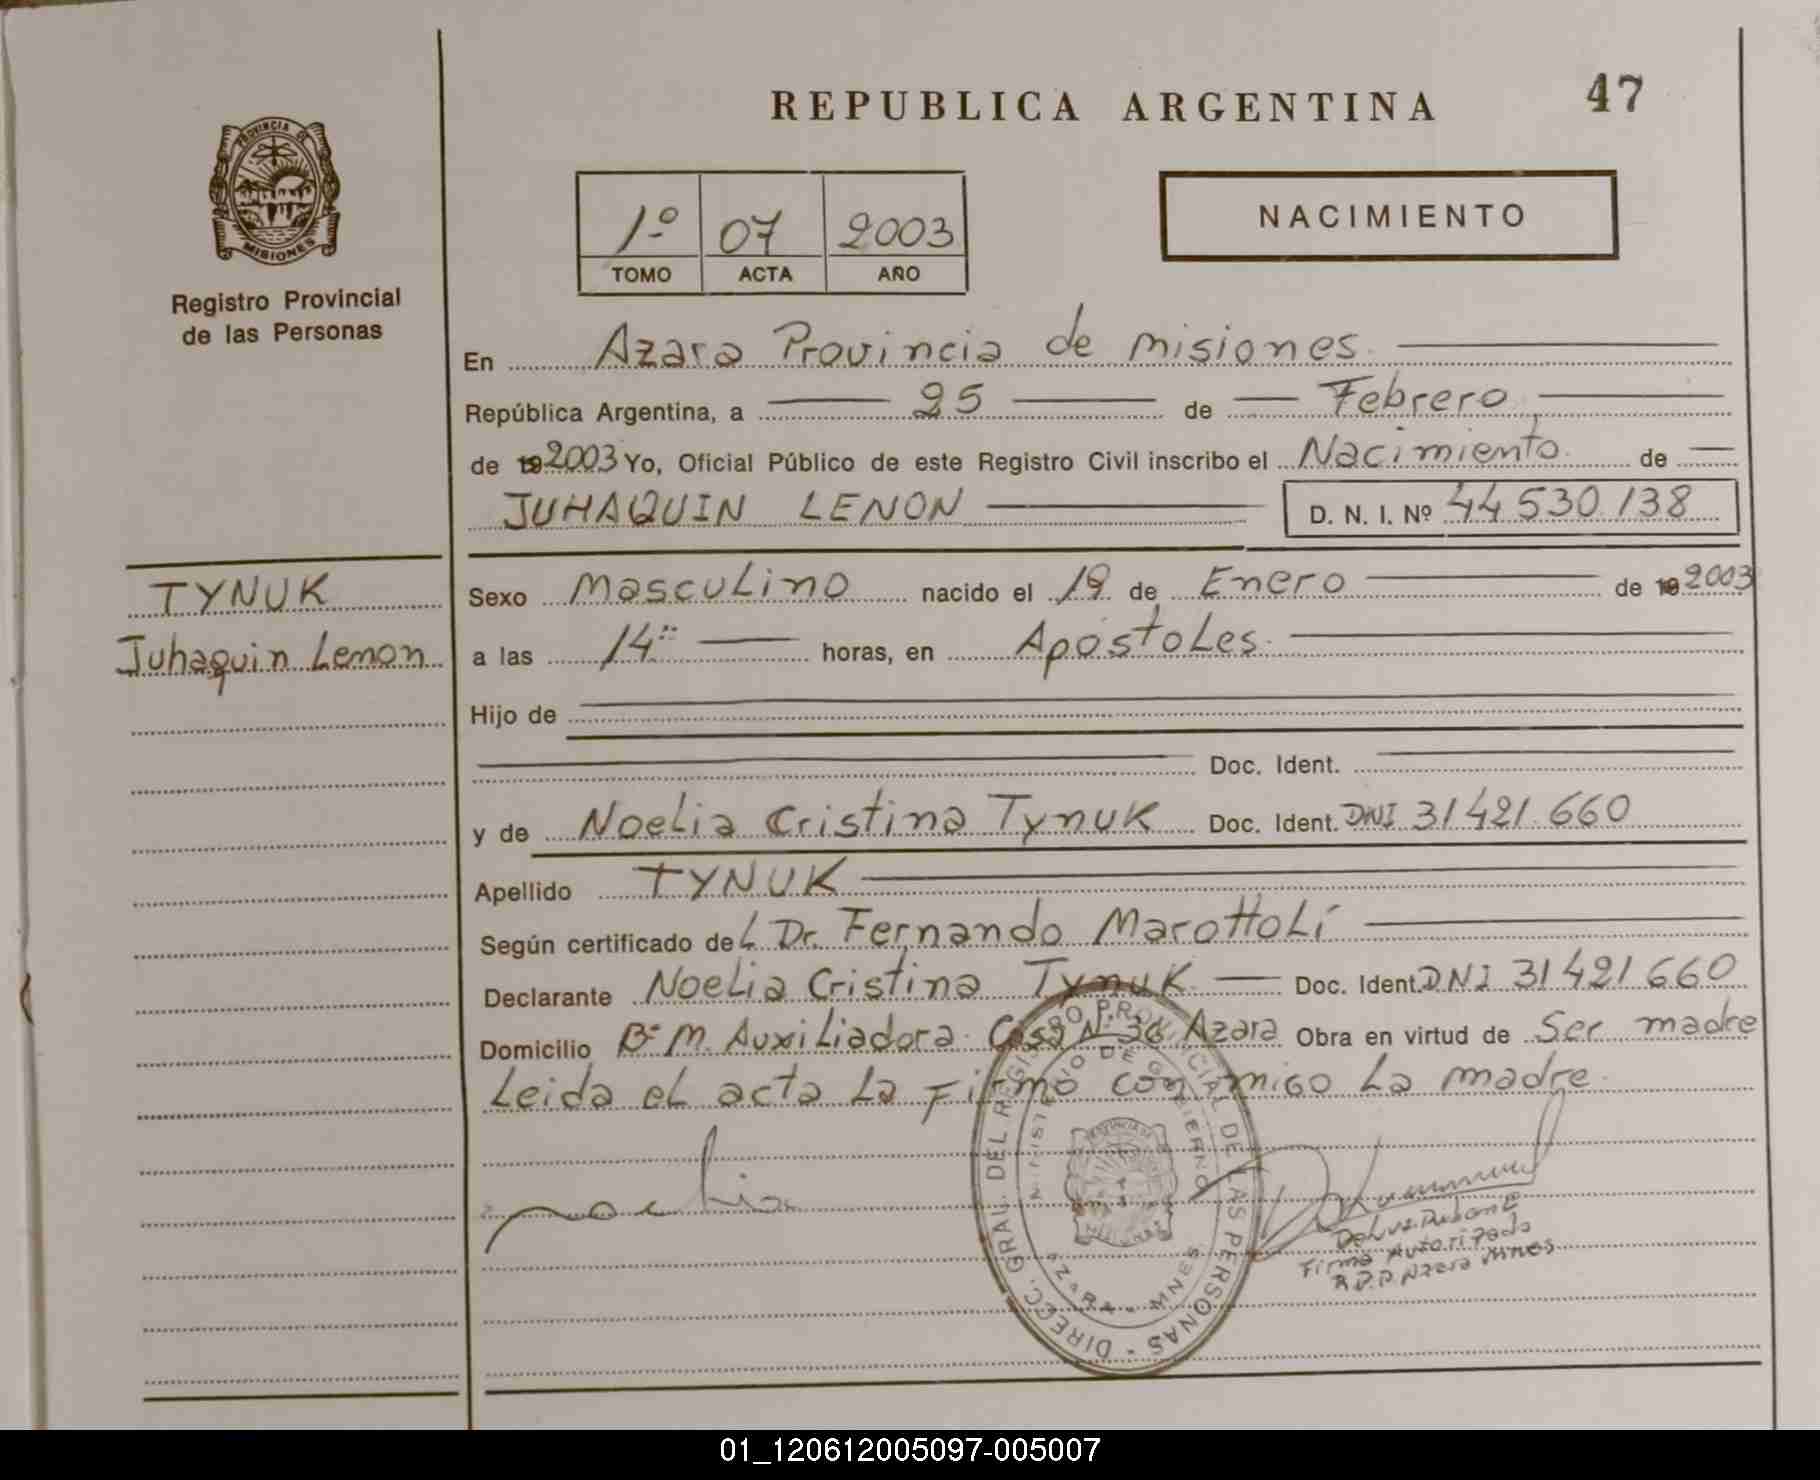 REPUBLICA ARGENTINA
47
PROVINCIA DE
MISIONES
Registro Provincial
de las Personas
1º 07 2003
TOMO ACTA AÑO
NACIMIENTO
En Azara Provincia de Misiones
República Argentina, a 25 de Febrero
de 192003 Yo, Oficial Público de este Registro Civil inscribo el Nacimiento de
JUHAQUIN LENON D. N. I. Nº 44 530 138
TYNUK
Juhaquin Lenon
Sexo Masculino nacido el 19 de Enero de 19 2003
a las 14 horas, en Apóstoles
Hijo de
Doc. Ident.
y de Noelia Cristina Tynuk Doc. Ident. DNI 31 421 660
Apellido TYNUK
Según certificado del Dr. Fernando Marottoli
Declarante Noelia Cristina Tynuk Doc. Ident. DNI 31 421 660
Domicilio Bº M. Auxiliadora Casa Nº 36 Azara Obra en virtud de Ser madre
Leida el acta La Firmo con migo La madre
noelia
DIRECC. GRAL. DEL REGISTRO PROVINCIAL DE LAS PERSONAS
MINISTERIO DE GOBIERNO
AZARA - MNES
PROVINCIA DE
MISIONES
Firma Autorizada
R.P.P. Azara Mnes
01_120612005097-005007